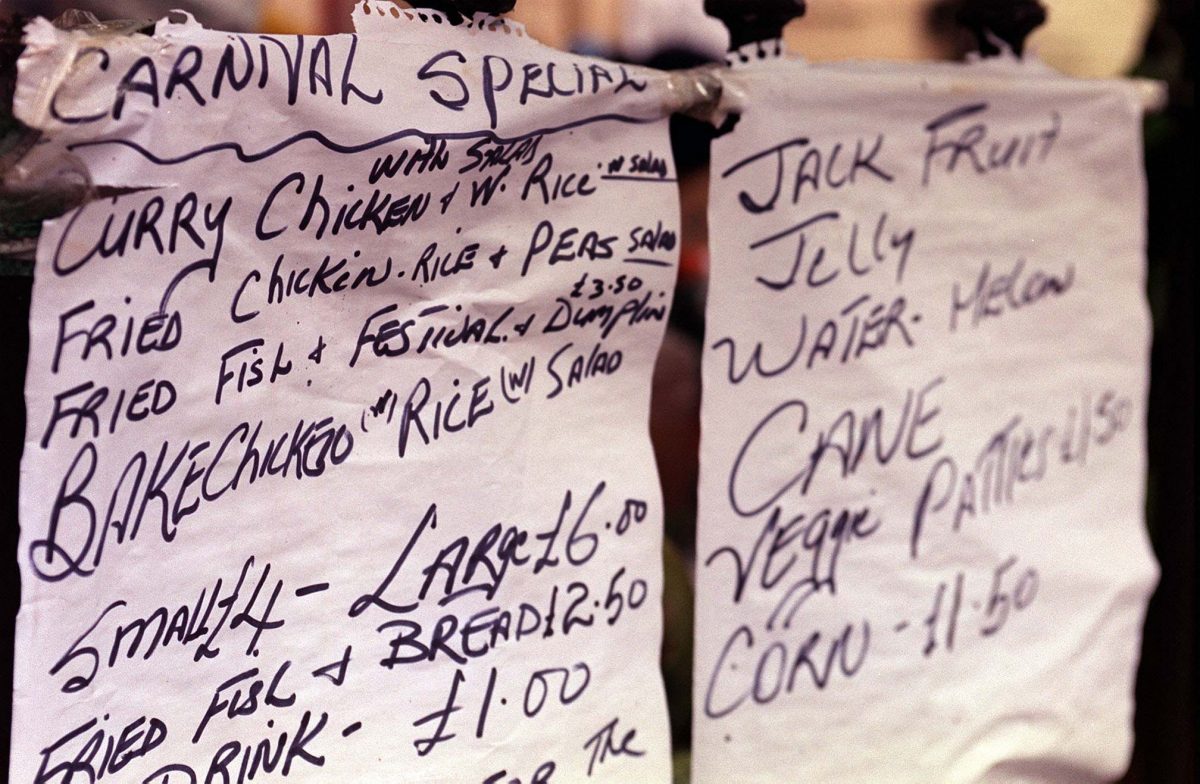 CARNIVAL SPECIAL
WITH SALAD
CURRY ChicKEN & W. RICE W SALAD
FRIED ChicKEN. RICE & PEAS SALAD
£3.50
FRIED FISH & FESTIVAL & DUMPlin
BAKE ChicKEN (W) RICE (W) SALAD
SMALL £4 - LARGE £6.00
FRIED FISH & BREAD £2.50
DRINK - £1.00
FOR The
JACK FRUIT
Jelly
WATER. MELON
CANE
VEggie PATTIES £1.50
CORN - £1.50